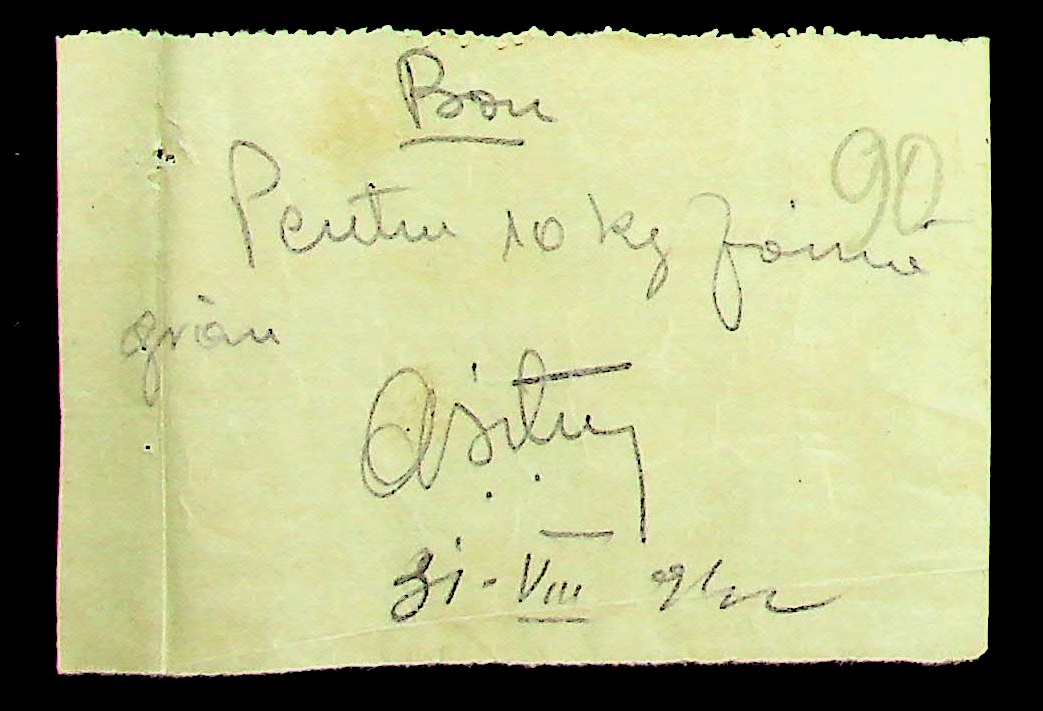 Bon
90
Pentru 10 kg făină
grâu
31-VIII